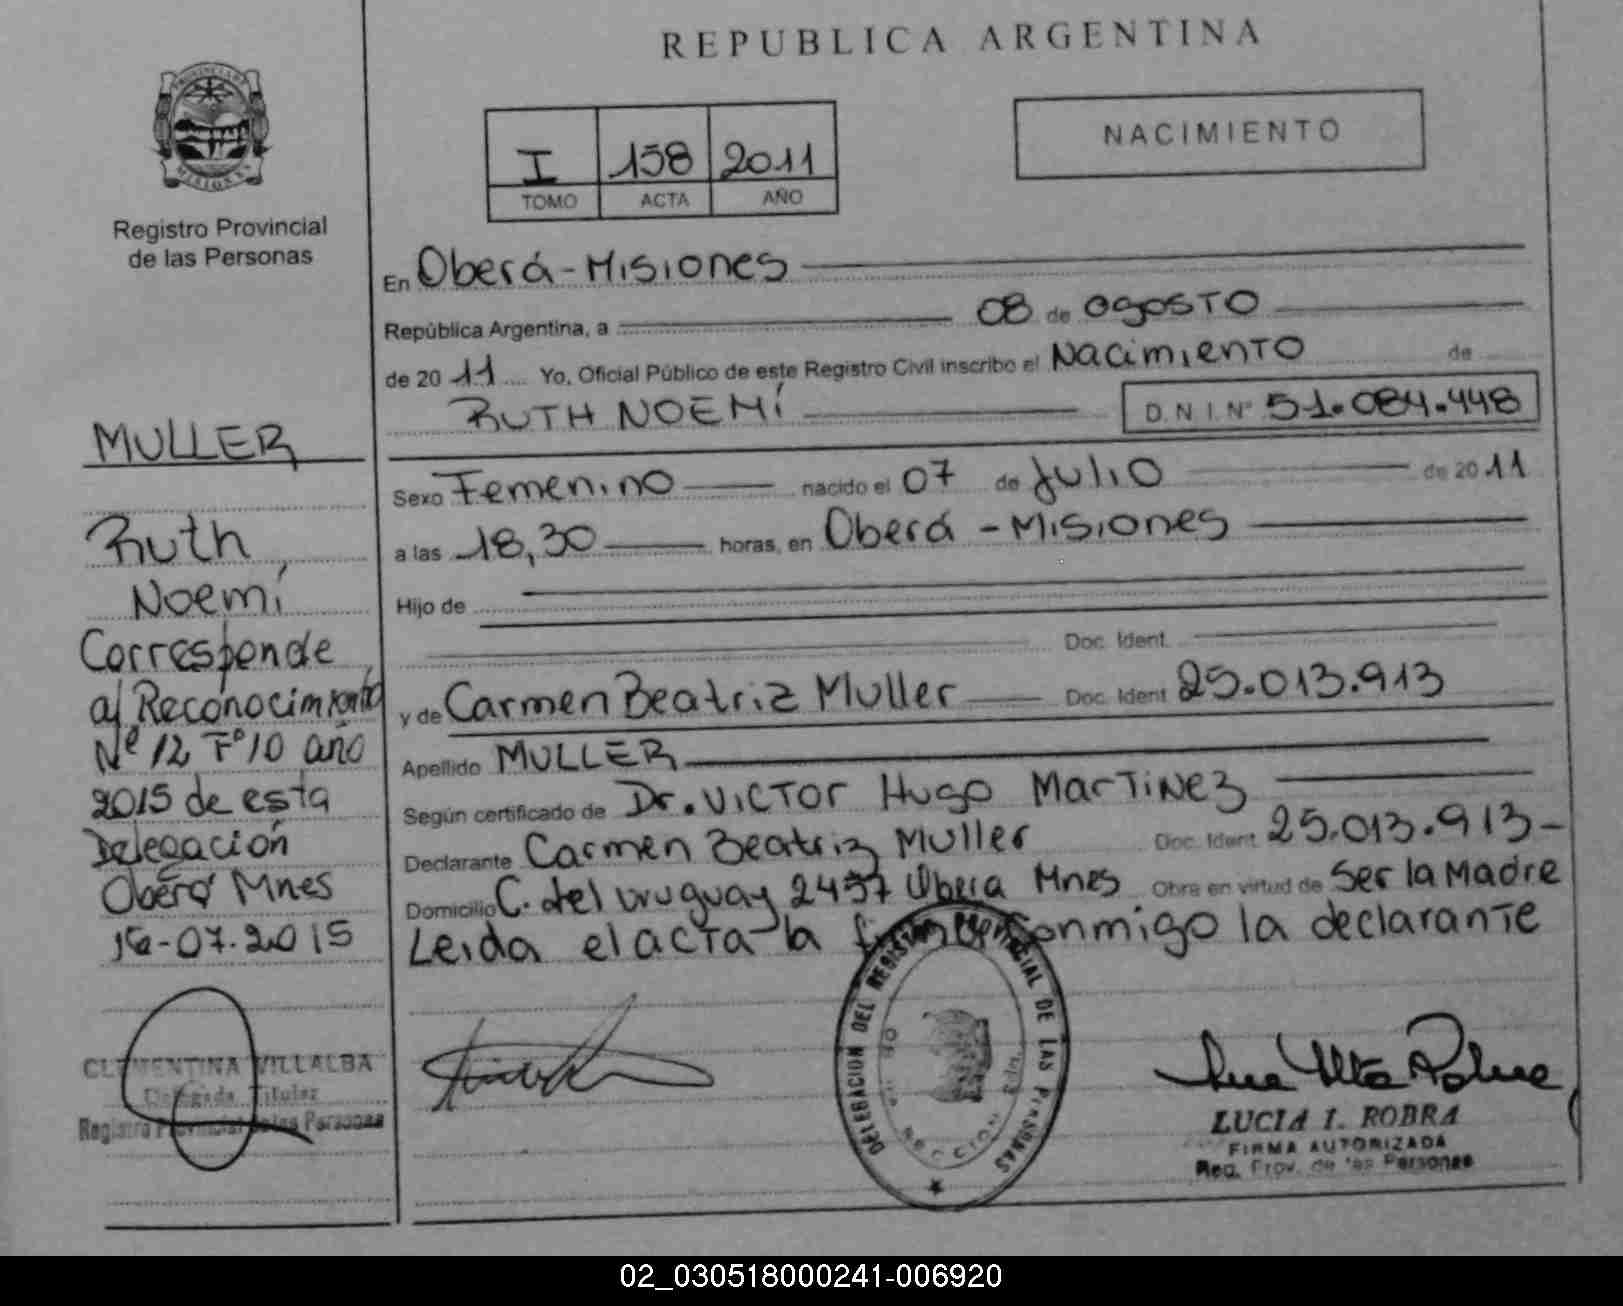 REPUBLICA ARGENTINA
NACIMIENTO
I 158 2011
TOMO ACTA AÑO
Registro Provincial
de las Personas
En Oberá - Misiones
República Argentina, a 08 de agosto
de 2011 Yo, Oficial Público de este Registro Civil inscribo el Nacimiento de
RUTH NOEMÍ D.N.I. Nº 51.084.448
Sexo Femenino nacido el 07 de Julio de 2011
a las 18,30 horas, en Oberá - Misiones
Hijo de
Doc. Ident.
y de Carmen Beatriz Muller Doc. Ident. 25.013.913
Apellido MULLER
Según certificado de Dr. VICTOR Hugo MarTiNez
Declarante Carmen Beatriz Muller Doc. Ident. 25.013.913-
Domicilio C. del uruguay 2457 Obera Mnes Obra en virtud de Ser la Madre
Leida el acta la conmigo la declarante
MULLER
Ruth
Noemí
Corresponde
al Reconocimiento
Nº 12 Fº 10 año
2015 de esta
Delegación
Oberá Mnes
16-07-2015
CLEMENTINA VILLALBA
Delegada Titular
Registro Provincial de las Personas
DELEGACION DEL REGISTRO PROVINCIAL DE LAS PERSONAS
LUCIA I. ROBRA
FIRMA AUTORIZADA
Reg. Prov. de las Personas
02_030518000241-006920